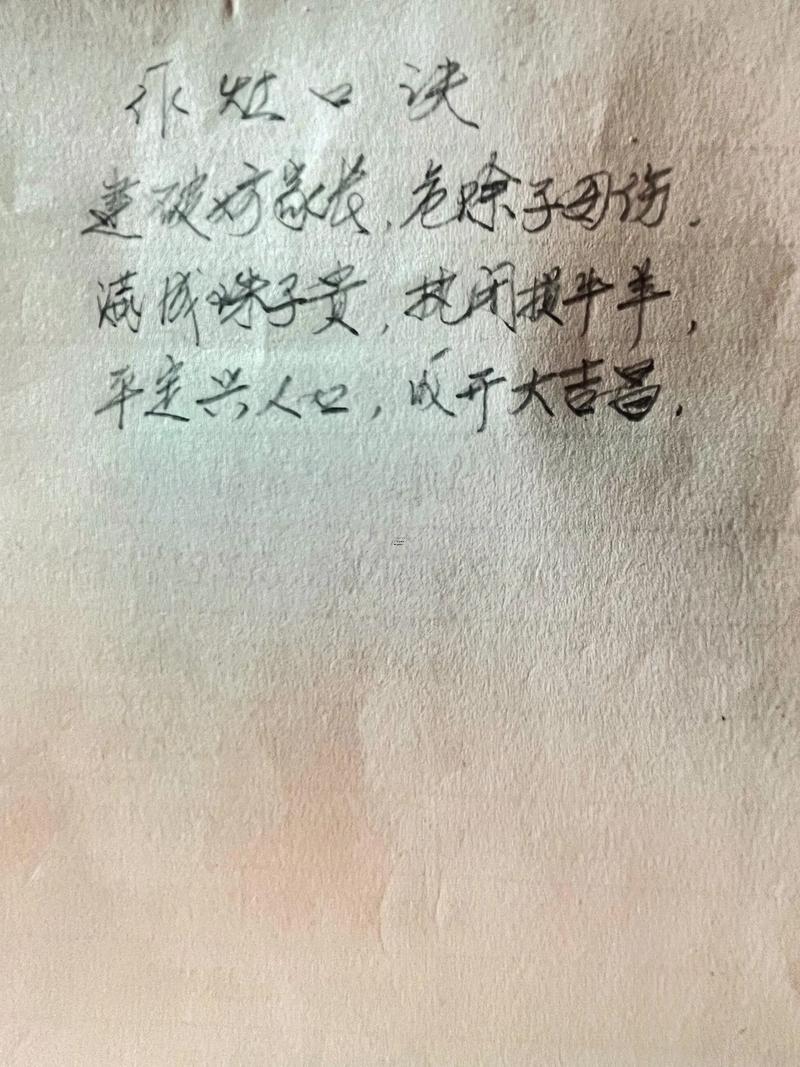 作灶口诀
建破妨家长，危除子母伤．
满成珠子贵，执闭损牛羊，
平定兴人口，收开大吉昌．